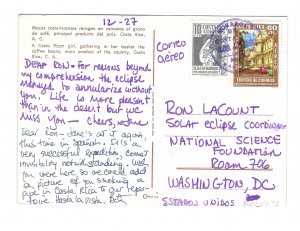 12-27
Mozas costarricenses recogen en canastos el grano
de café, principal producto del país. Costa Rica,
A. C.
A Costa Rican girl, gathering in her basket the
coffee beans, main product of the country. Costa
Rica, A. C.
CORREO
AEREO
COSTA RICA
60
DEAR RON - For reasons beyond
my comprehension the eclipse
managed to annularize without
you. Life is more pleasant
than in the desert but we
miss you - cheers,
Dear Ron - Jane's at it again,
this time in Spanish. It is a
very successful expedition, corona
invisibility notwithstanding. Wish
you were here so we could add
a picture of you smoking a
pipe in Costa Rica to our reper-
toire. Hasta la vista.
RON LACOUNT
SOLAR ECLIPSE COORDINATOR
NATIONAL SCIENCE
FOUNDATION
ROOM 706
WASHINGTON, DC
ESTADOS UNIDOS